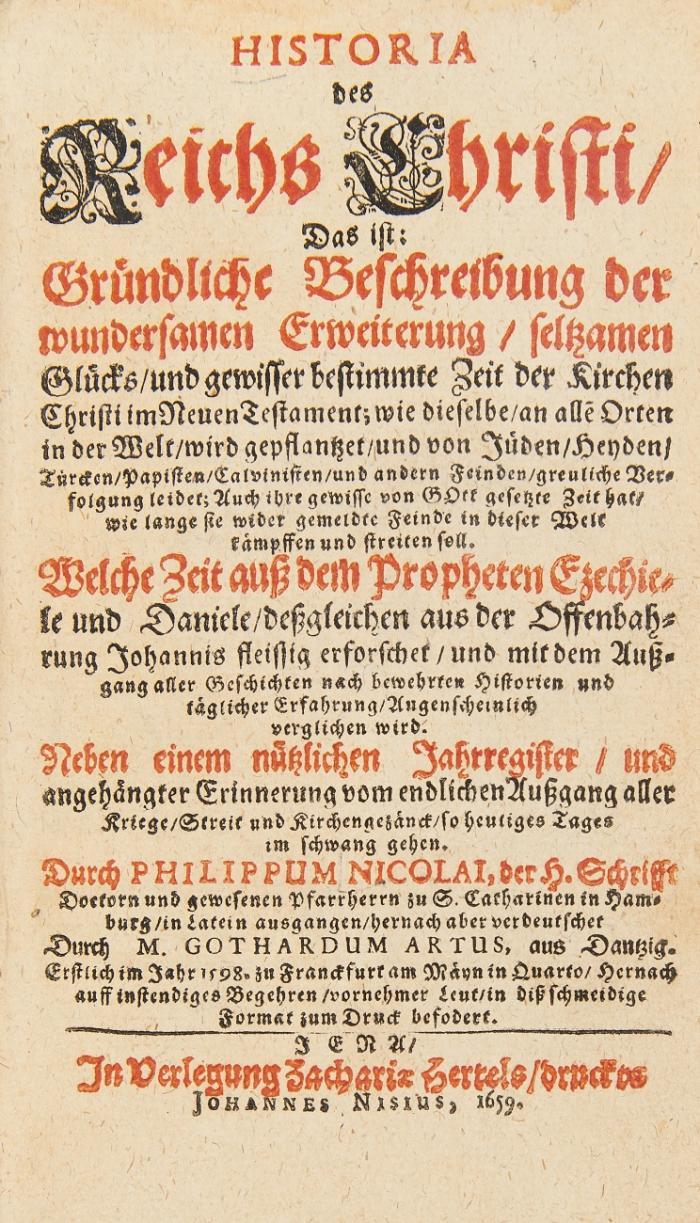 HISTORIA
des
Reichs Christi/
Das ist:
Gründliche Beschreibung der
wundersamen Erweiterung / seltzamen
Glücks/und gewisser bestimmte Zeit der Kirchen
Christi im Neuen Testament; wie dieselbe/an allē Orten
in der Welt/wird gepflantzet/und von Jüden/Heyden/
Türcken/Papisten/Calvinisten/und andern Feinden/greuliche Ver-
folgung leidet; Auch ihre gewisse von GOtt gesetzte Zeit hat/
wie lange sie wider gemeldte Feinde in dieser Welt
kämpffen und streiten soll.
Welche Zeit auß dem Propheten Ezechie-
le und Daniele/deßgleichen aus der Offenbah-
rung Johannis fleissig erforschet / und mit dem Auß-
gang aller Geschichten nach bewehrten Historien und
täglicher Erfahrung/Augenscheinlich
verglichen wird.
Neben einem nützlichen Jahrregister / und
angehängter Erinnerung vom endlichen Außgang aller
Kriege/Streit und Kirchengezänck/so heutiges Tages
im schwang gehen.
Durch PHILIPPUM NICOLAI, der H. Schrifft
Doctorn und gewesenen Pfarrherrn zu S. Catharinen in Ham-
burg/in Latein ausgangen/hernach aber verdeutschet
Durch M. GOTHARDUM ARTUS, aus Dantzig.
Erstlich im Jahr 1598. zu Franckfurt am Mäyn in Quarto/ Hernach
auff instendiges Begehren /vornehmer Leut/in diß schmeidige
Format zum Druck befodert.
JENA/
In Verlegung Zachariæ Hertels/druckts
JOHANNES NISIUS, 1659.